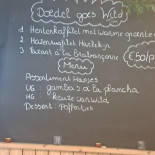 Doedel goes Wild
1 Hertenkalfitel met warme groente
2 Hazenwaftel Hartelijk
3 Fazant à la Brabançonne
€50/p
Menu
Assortiment Hapjes
VG : gamba's a la plancha
HG : keuze van wild
Dessert : Poffertjes